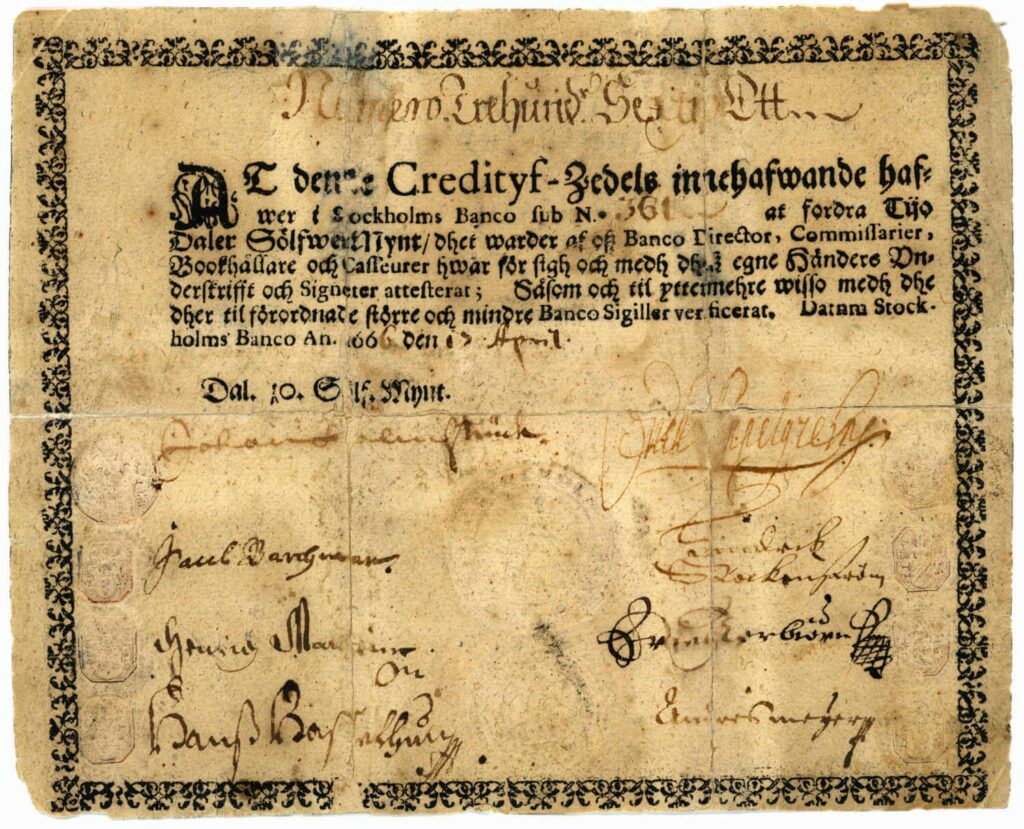 Numero. Trehund. Sextio Ott
AT denne Credityf-Zedels innehafwande haf-
wer i Stockholms Banco sub N. 36 at fordra Tijo
Daler Sölfwer Mynt/ dhet warder af oß Banco Director, Commissarier,
Bookhållare och Casseurer hwar för sigh och medh egne Händers Vn-
derskrifft och Signeter attesterat; Såsom och til yttermehre wisso medh dhe
dher til förordnade större och mindre Banco Sigiller verificerat. Datum Stock-
holms Banco An. 1666 den 17 April.
Dal. 10. S lf. Mynt.
Johan Palmstruck
Paul Barchman
Hindrick
Stockenström
Henrig
Hanß
Andres meyer